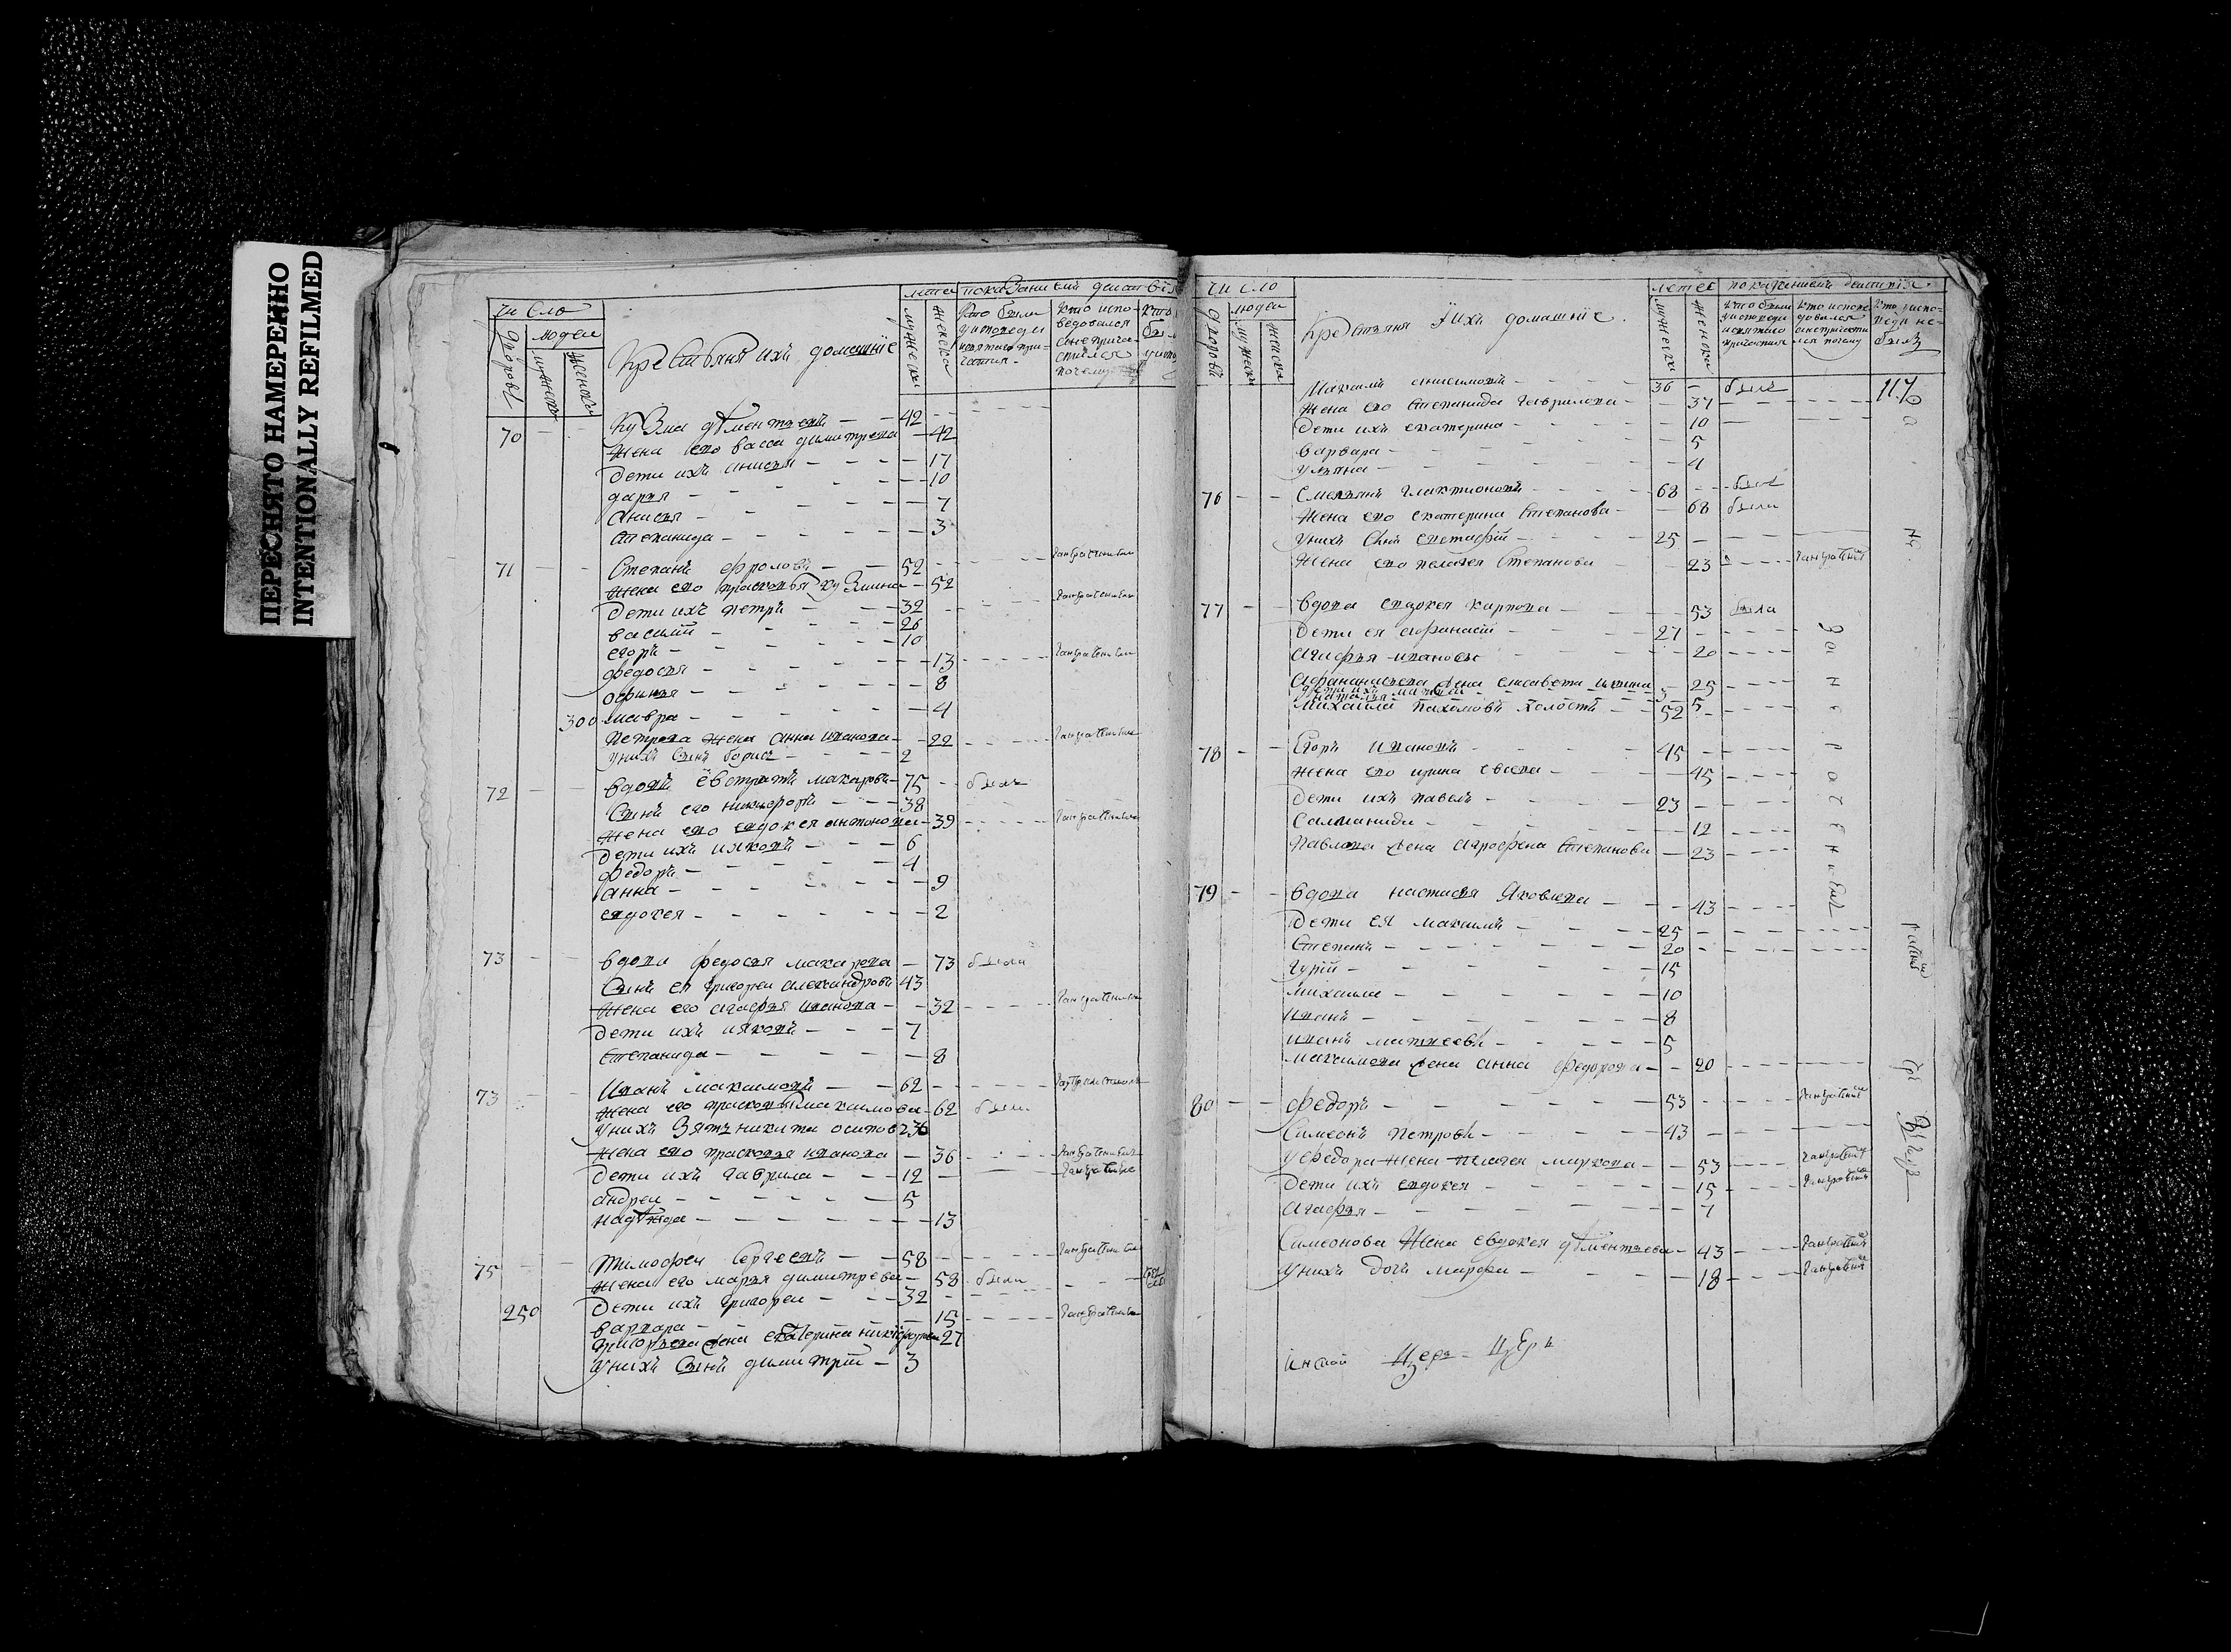 ПЕРЕСНЯТО НАМЕРЕННО
INTENTIONALLY REFILMED
число
дворовъ
людеи
мужеска
женска
Крестьяня ихъ домашніе
лета
мужеска
женска
Кто были у исповеди и святаго причастия
Кто исповедовался а не причастился и почему
70 Кузма дѣментьевъ 42
жена его васса димитрева 42
дети ихъ анисья 17
дарья 10
анисья 7
степанида 3
71 Степанъ фроловъ 52
жена его прасковья кузмина 52
дети ихъ петръ 32
василій 26
егоръ 10
федосья 13
офимья 8
300 мавра 4
петрова жена анна иванова 22
у нихъ сынъ борисъ 2
72 вдовъ евстратъ макаровъ 75 былъ
сынъ его никифоръ 38
жена его евдокея антонова 39
дети ихъ иаковъ 6
федоръ 4
анна 9
евдокея 2
73 вдова федосья макарева 73 была
сынъ ея григореи александровъ 43
жена его агафья иванова 32
дети ихъ иаковъ 7
степанида 8
73 Иванъ макимовъ 62
жена его прасковья макимова 62 была
у нихъ зять никита осиповъ 36
жена его прасковья иванова 36
дети ихъ гаврила 12
андреи 5
надѣжда 13
75 тимофеи сергеевъ 58
жена его марья димитрева 58 была
250 дети ихъ григореи 32
варвара 15
григорьева жена екатерина никифорова 27
у нихъ сынъ димитріи 3
число
дворовъ
людеи
мужеска
женска
Крестьяня и ихъ домашніе
летъ
мужеска
женска
кто были у исповеди и святаго причастия
кто исповедовался а не причастился и почему
кто у исповеди не былъ
Макимъ анисимовъ 36 былъ 117
жена его степанида гаврилова 37
дети ихъ екатерина 10
варвара 5
ульяна 4
76 Емельянъ галактионовъ 68 былъ
жена его екатерина степанова 68 была
у нихъ сынъ евстафій 25
жена его пелагея степанова 23
77 вдова евдокея карпова 53 была
дети ея афанасій 27
агафья ивановы 20
афанасьева жена елисавета 25
михаила пахомовъ холостъ 52
78 Егоръ ивановъ 45
жена его ирина 45
дети ихъ павелъ 23
саламанида 12
павлова жена агрофена степанова 23
79 вдова настасья яковлева 43
дети ея макимъ 25
степанъ 20
гурій 15
михаила 10
иванъ 8
иванъ матвеевъ 5
макимова жена анна федорова 20
80 федоръ 53
симеонъ петровы 43
у федора жена пелагея маркова 53
дети ихъ евдокея 15
агафья 7
симеонова жена евдокея дѣментьева 43
у нихъ дочь марфа 18